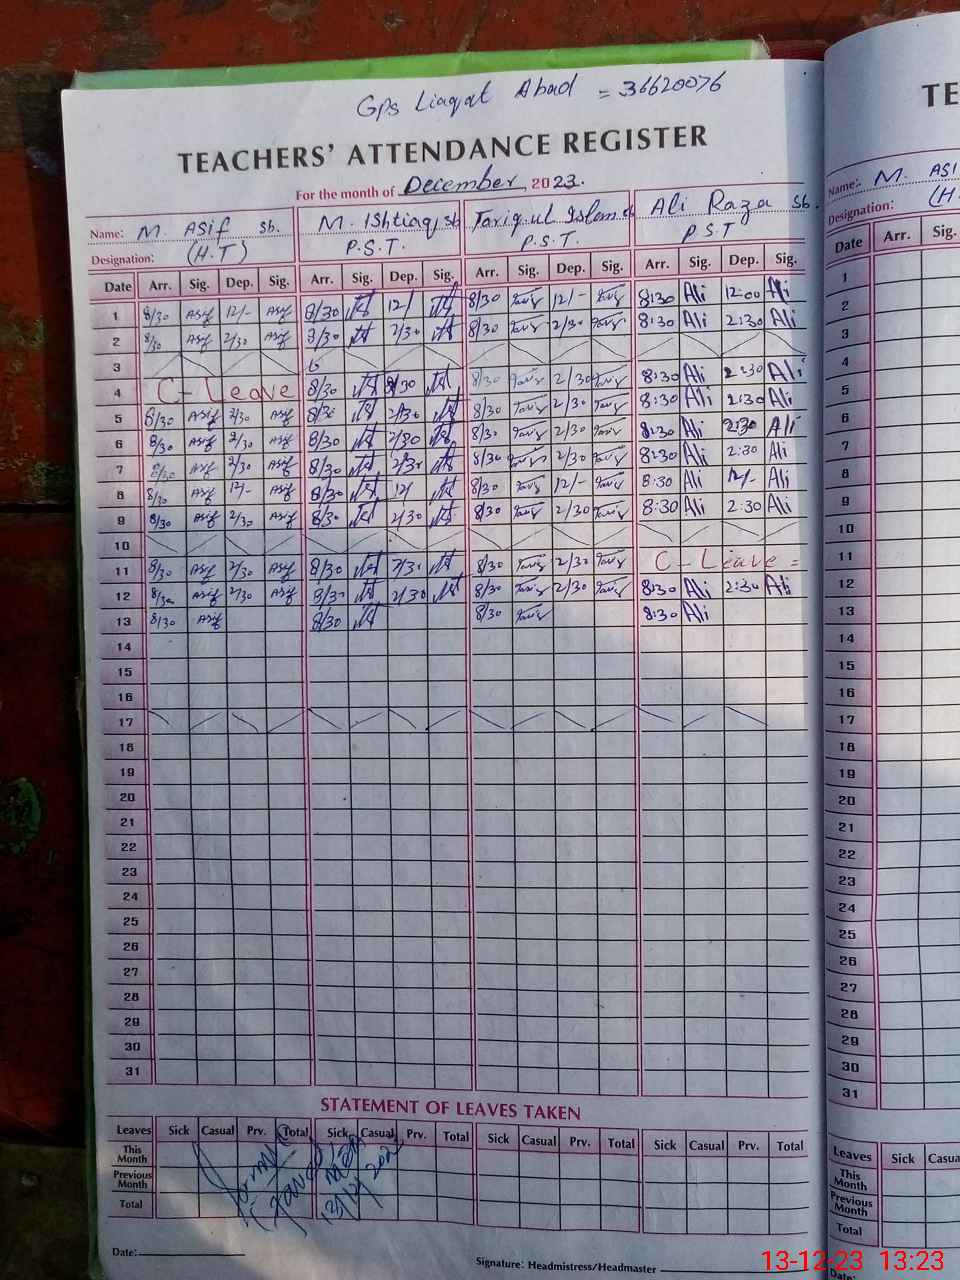 Gps Liaqat Abad = 36620076
TEACHERS' ATTENDANCE REGISTER
For the month of December 2023.
Name: M. Asif sb. M. Ishtiaq sb Tariq ul Islam sb Ali Raza sb.
Designation: (H.T) P.S.T. P.S.T. P.S.T
Date Arr. Sig. Dep. Sig. Arr. Sig. Dep. Sig. Arr. Sig. Dep. Sig. Arr. Sig. Dep. Sig.
1 8/30 Asif 12/- Asif 8/30 12/ 8/30 Tariq 12/- Tariq 8:30 Ali 12:00 Ali
2 8/30 Asif 2/30 Asif 8/30 2/30 8/30 Tariq 2/30 Tariq 8:30 Ali 2:30 Ali
3
4 C-Leave 8/30 2/30 8/30 Tariq 2/30 Tariq 8:30 Ali 2:30 Ali
5 8/30 Asif 2/30 Asif 8/30 2/30 8/30 Tariq 2/30 Tariq 8:30 Ali 2:30 Ali
6 8/30 Asif 2/30 Asif 8/30 2/30 8/30 Tariq 2/30 Tariq 8:30 Ali 2:30 Ali
7 8/30 Asif 2/30 Asif 8/30 2/30 8/30 Tariq 2/30 Tariq 8:30 Ali 2:30 Ali
8 8/30 Asif 12/- Asif 8/30 12/ 8/30 Tariq 12/- Tariq 8:30 Ali 12/- Ali
9 8/30 Asif 2/30 Asif 8/30 2/30 8/30 Tariq 2/30 Tariq 8:30 Ali 2:30 Ali
10
11 8/30 Asif 2/30 Asif 8/30 2/30 8/30 Tariq 2/30 Tariq C-Leave =
12 8/30 Asif 2/30 Asif 8/30 2/30 8/30 Tariq 2/30 Tariq 8:30 Ali 2:30 Ali
13 8/30 Asif 8/30 8/30 Tariq 8:30 Ali
14
15
16
17
18
19
20
21
22
23
24
25
26
27
28
29
30
31
STATEMENT OF LEAVES TAKEN
Leaves Sick Casual Prv. Total Sick Casual Prv. Total Sick Casual Prv. Total Sick Casual Prv. Total
This Month
Previous Month
Total
Javed
13/12/2023
Date:
Signature: Headmistress/Headmaster
TE
Name: M. Asi
Designation: (H.
Date Arr. Sig.
1
2
3
4
5
6
7
8
9
10
11
12
13
14
15
16
17
18
19
20
21
22
23
24
25
26
27
28
29
30
31
Leaves Sick Casua
This Month
Previous Month
Total
Date:
13-12-23 13:23